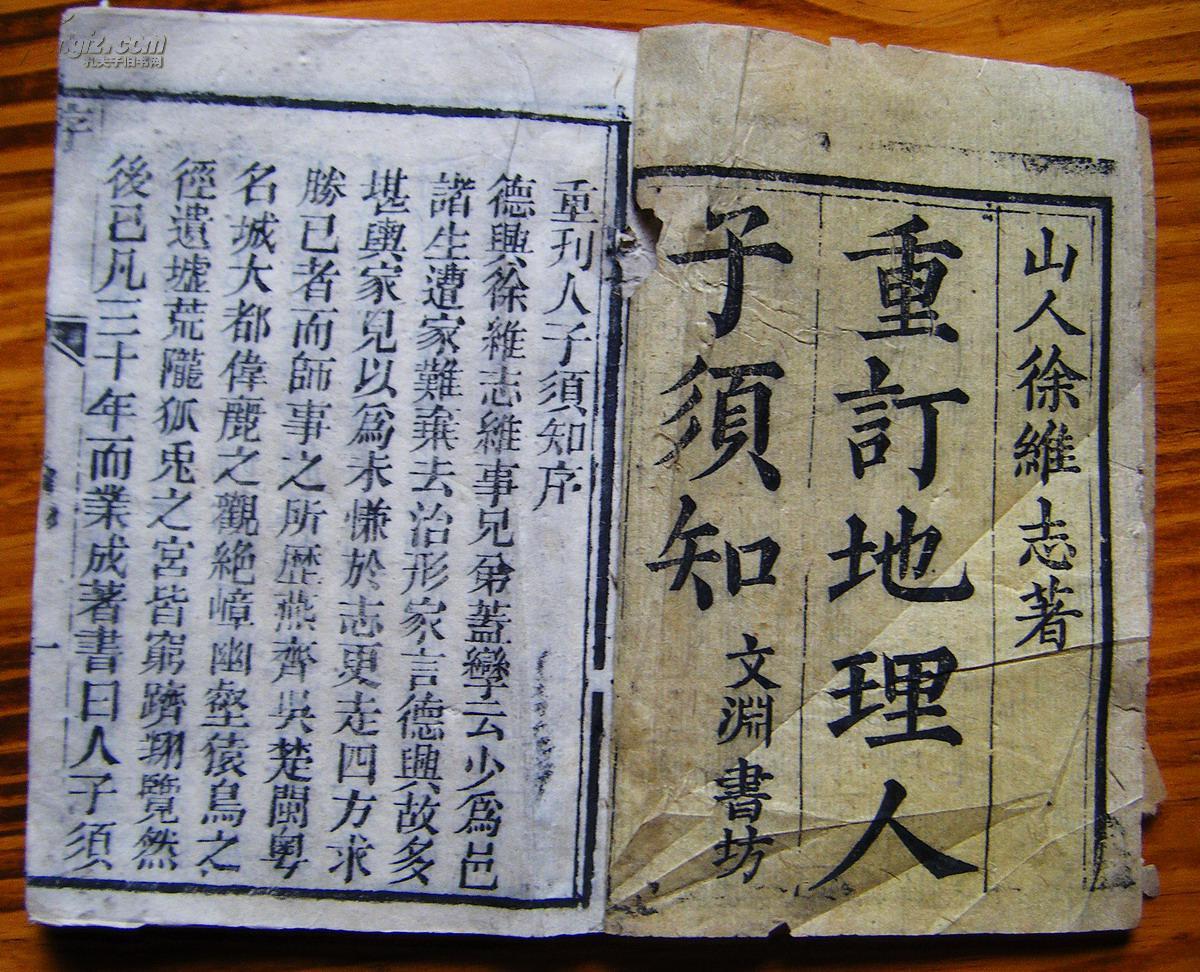 山人徐維志著
重訂地理人
子須知
文淵書坊
重刊人子須知序
德興徐維志維事兄弟蓋孿云少爲邑
諸生遭家難棄去治形家言德興故多
堪輿家兄以爲未慊於志更走四方求
勝已者而師事之所歷燕齊吳楚閩粵
名城大都偉麗之觀絶嶂幽壑猿鳥之
徑遺墟荒隴狐兎之宮皆窮躋翔覽然
後已凡三十年而業成著書曰人子須
序
一
孔夫子旧书网